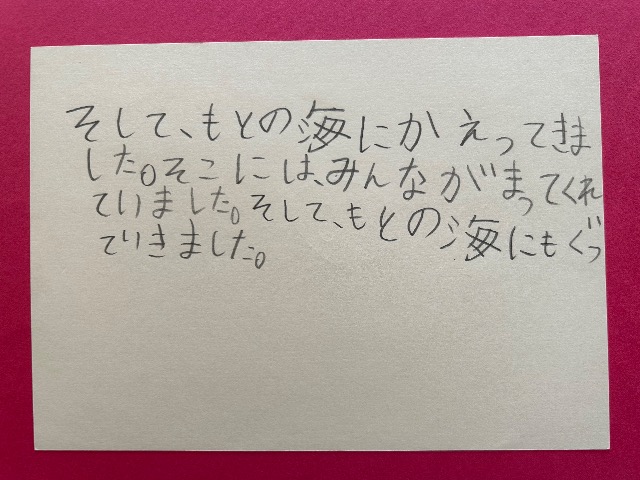 そして、もとの海にかえってきま
した。そこには、みんながまってくれ
ていました。そして、もとの海にもぐっ
ていきました。